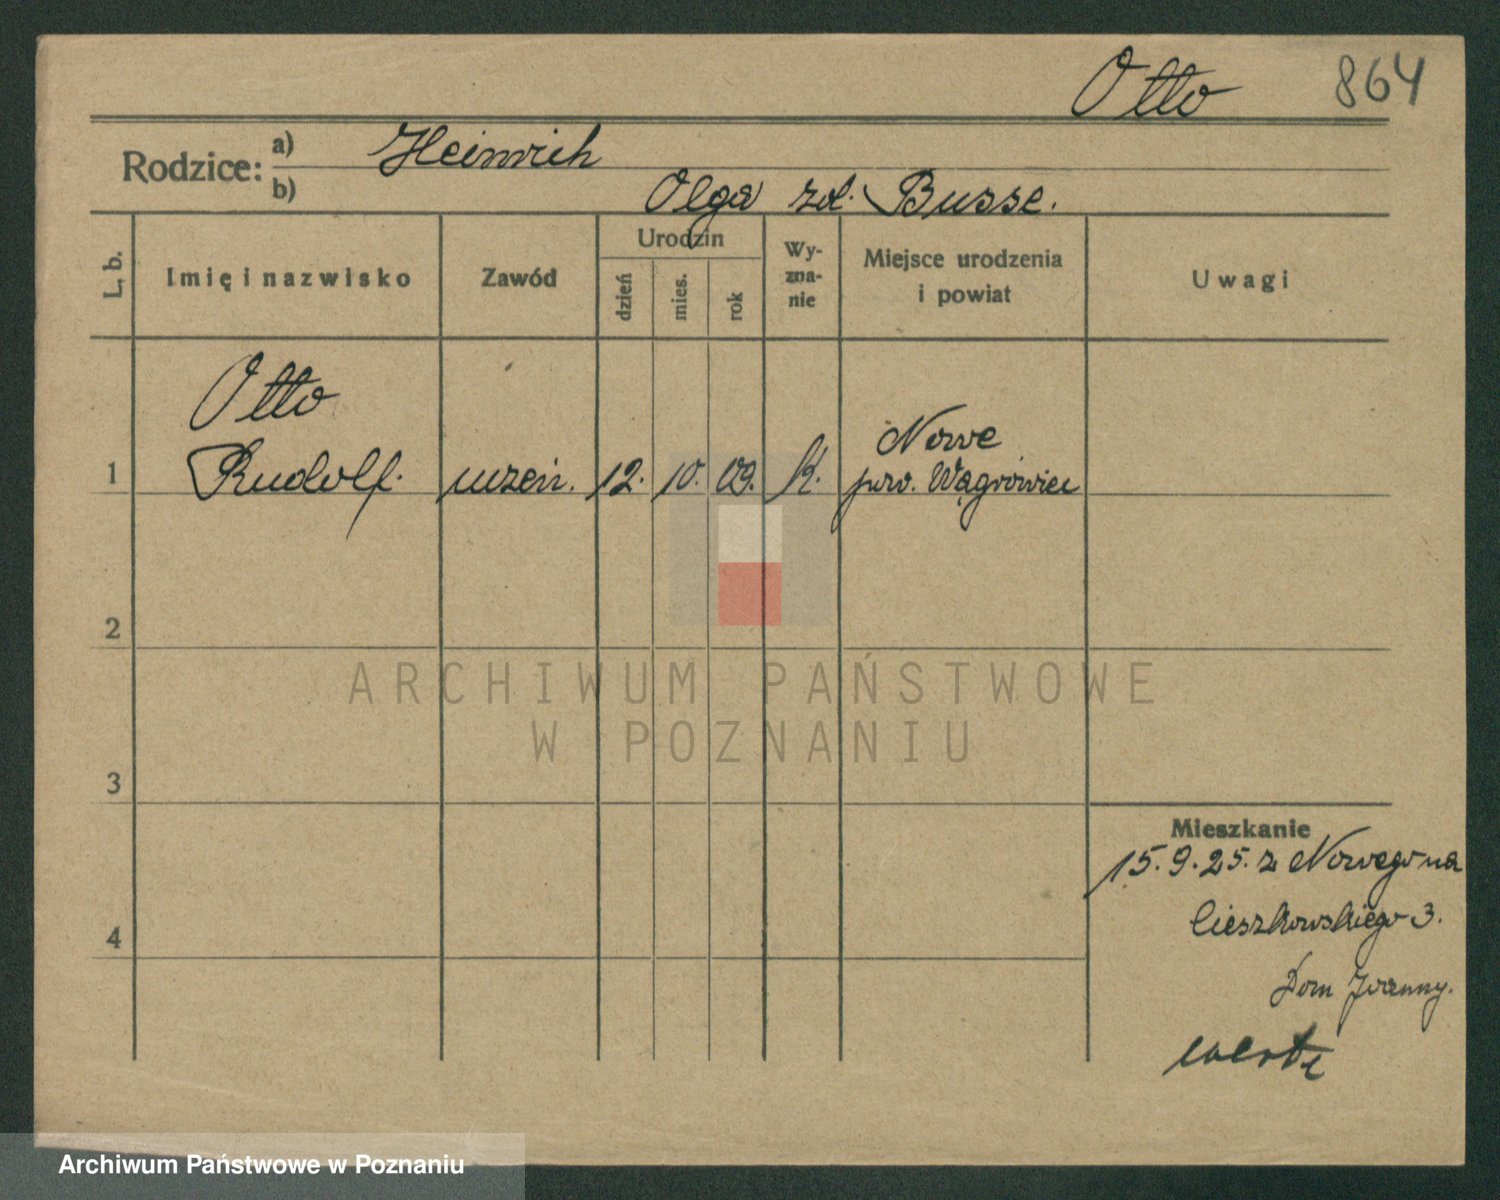 Otto 864
Rodzice: a) Heinrich
b) Olga zd. Busse.
L. b.
Imię i nazwisko
Zawód
Urodzin
dzień
mies.
rok
Wy-
zna-
nie
Miejsce urodzenia
i powiat
Uwagi
Otto
1 Rudolf. uczeń. 12. 10. 09. K. Nowe
pow. Wągrowiec
2
3
4
Mieszkanie
15.9.25. z Nowego na
Cieszkowskiego 3.
Dom Joanny.
ARCHIWUM PAŃSTWOWE
W POZNANIU
Archiwum Państwowe w Poznaniu